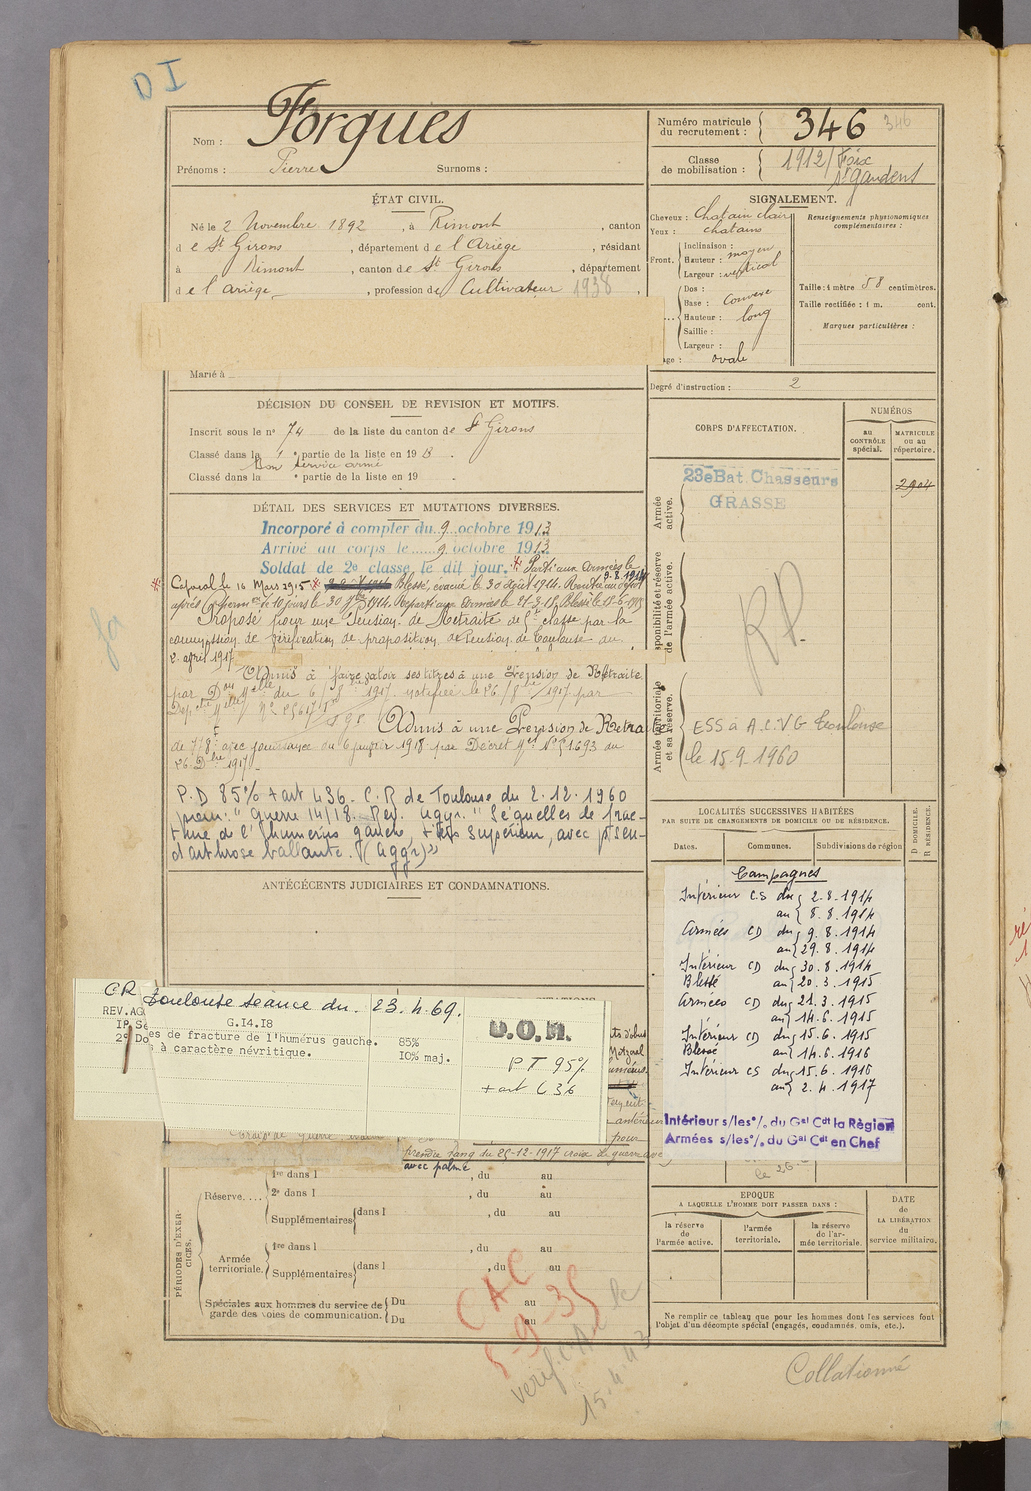 D I
Nom : Forgues
Prénoms : Pierre Surnoms :
Numéro matricule du recrutement : 346 346
Classe de mobilisation : 1912/Foix
St Gaudens
ÉTAT CIVIL.
Né le 2 Novembre 1892, à Rimont, canton
de St Girons, département de l'Ariège, résidant
à Rimont, canton de St Girons, département
de l'Ariège, profession de Cultivateur 1938
Marié à
SIGNALEMENT.
Cheveux : Chatain clair
Yeux : chatains
Front. Inclinaison :
Hauteur : moyen
Largeur : vertical
Dos :
Base : Convexe
Hauteur : long
Saillie :
Largeur :
age : ovale
Renseignements physionomiques
complémentaires :
Taille : 1 mètre 58 centimètres.
Taille rectifiée : 1 m. cent.
Marques particulières :
Degré d'instruction : 2
DÉCISION DU CONSEIL DE REVISION ET MOTIFS.
Inscrit sous le no 74 de la liste du canton de St Girons
Classé dans la 1e partie de la liste en 1913.
Bon service armé
Classé dans la e partie de la liste en 19 .
CORPS D'AFFECTATION.
NUMÉROS
au CONTRÔLE spécial.
MATRICULE ou au répertoire.
Armée active.
23e Bat. Chasseurs
GRASSE
2904
sponibilité et réserve de l'armée active.
Armée territoriale et sa réserve
ESS à A.C.V.G Toulouse
le 15-9-1960
DÉTAIL DES SERVICES ET MUTATIONS DIVERSES.
Incorporé à compter du 9 octobre 1913
Arrivé au corps le 9 octobre 1913
Soldat de 2e classe le dit jour. Parti aux Armées le
9-8-1914
Caporal le 16 Mars 1915 Blessé, évacué le 30 Août 1914. Rentré au dépôt
après Conv de 10 jours le 30 1914. Reparti aux Armées le 21-3-15. Blessé le 15-6-1915
Proposé pour une Pension de Retraite de 5e classe par la
commission de vérification de proposition de Pension de Toulouse du
2 avril 1917
Admis à faire valoir ses titres à une Pension de Retraite
par Don Melle du 6/8 1917 notifiée le 26/8/1917 par
Admis à une Pension de Retra
de 778f avec jouissance du 6 janvier 1918 par Décret du
26 Dbre 1917
P.D 85% + art L36. C.R de Toulouse du 2.12.1960
prem: "Guerre 14/18. Rev. aggr. "Séquelles de frac-
ture de l'humérus gauche, supérieur, avec pseu-
darthrose ballante. (aggr)"
LOCALITÉS SUCCESSIVES HABITÉES
PAR SUITE DE CHANGEMENTS DE DOMICILE OU DE RÉSIDENCE.
Dates.
Communes.
Subdivisions de région
D DOMICILE.
R RÉSIDENCE.
ANTÉCÉDENTS JUDICIAIRES ET CONDAMNATIONS.
Campagnes
Intérieur CS du 2.8.1914
au 8.8.1914
Armées CD du 9.8.1914
au 29.8.1914
Intérieur CD du 30.8.1914
Blessé au 20.3.1915
Armées CD du 21.3.1915
au 14.6.1915
Intérieur CD du 15.6.1915
Blessé au 14.6.1916
Intérieur CS du 15.6.1916
au 2.4.1917
Intérieur s/les°/. du Gal Cdt la Région
Armées s/les°/. du Gal Cdt en Chef
CR Toulouse séance du. 23.4.69.
REV.AG
G.14.18
1° Se
es de fracture de l'humérus gauche. 85%
2° Do
s à caractère névritique. 10% maj.
D.O.M.
PT 95%
+ art L36
prendre rang du 25-12-1917 croix de guerre
avec palme
PÉRIODES D'EXERCICES.
Réserve....
1re dans l , du au
2e dans l , du au
Supplémentaires dans l , du au
Armée territoriale.
1re dans l , du au
Supplémentaires dans l , du au
Spéciales aux hommes du service de garde des voies de communication.
Du au
Du au
ÉPOQUE
A LAQUELLE L'HOMME DOIT PASSER DANS :
la réserve de l'armée active.
l'armée territoriale.
la réserve de l'armée territoriale.
DATE
de
LA LIBÉRATION
du
service militaire.
Ne remplir ce tableau que pour les hommes dont les services font
l'objet d'un décompte spécial (engagés, condamnés, omis, etc.).
CAC
5-9-35
verifié A.C le
15.4.43
Collationné